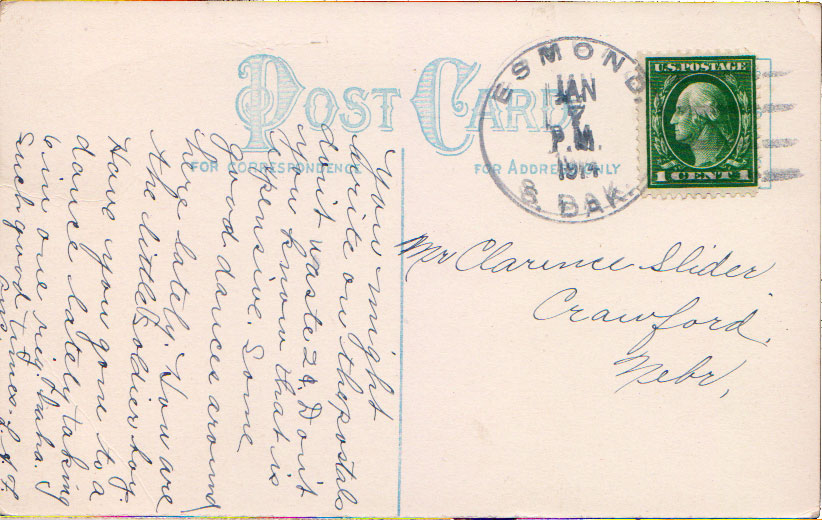 POST CARD
FOR CORRESPONDENCE
FOR ADDRESS ONLY
ESMOND,
JAN
7
P.M.
1914
S. DAK.
U.S. POSTAGE
1 CENT 1
Mr Clarence Slider
Crawford,
Nebr,
You might
write on the postals
don't waste 2¢ Don't
you know that is
expensive. Some
good dances around
here lately. You are
the little Soldier boy.
Have you gone to a
dance lately taking
6 in one rig. Haha.
such good times.
Ans.